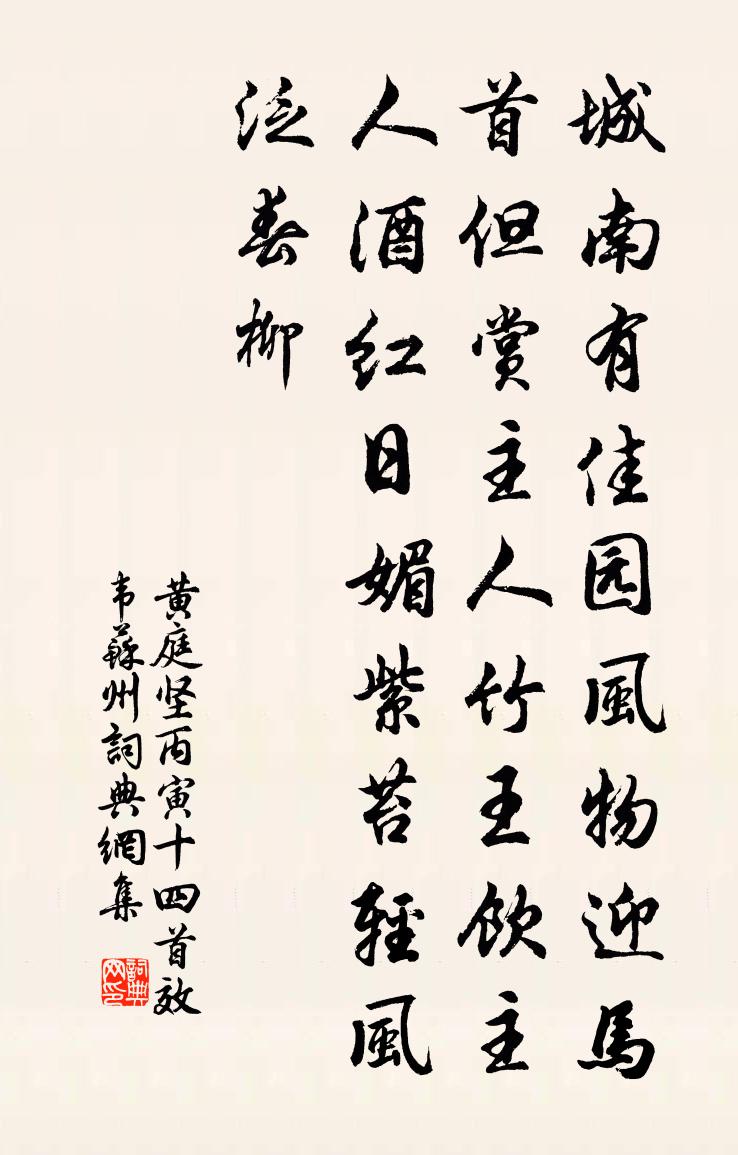 城南有佳园風物迎馬
首但赏主人竹王饮主
人酒红日媚紫苔輕風
泛春柳
黄庭坚丙寅十四首效
韦蘇州詞典網集
詞典网印